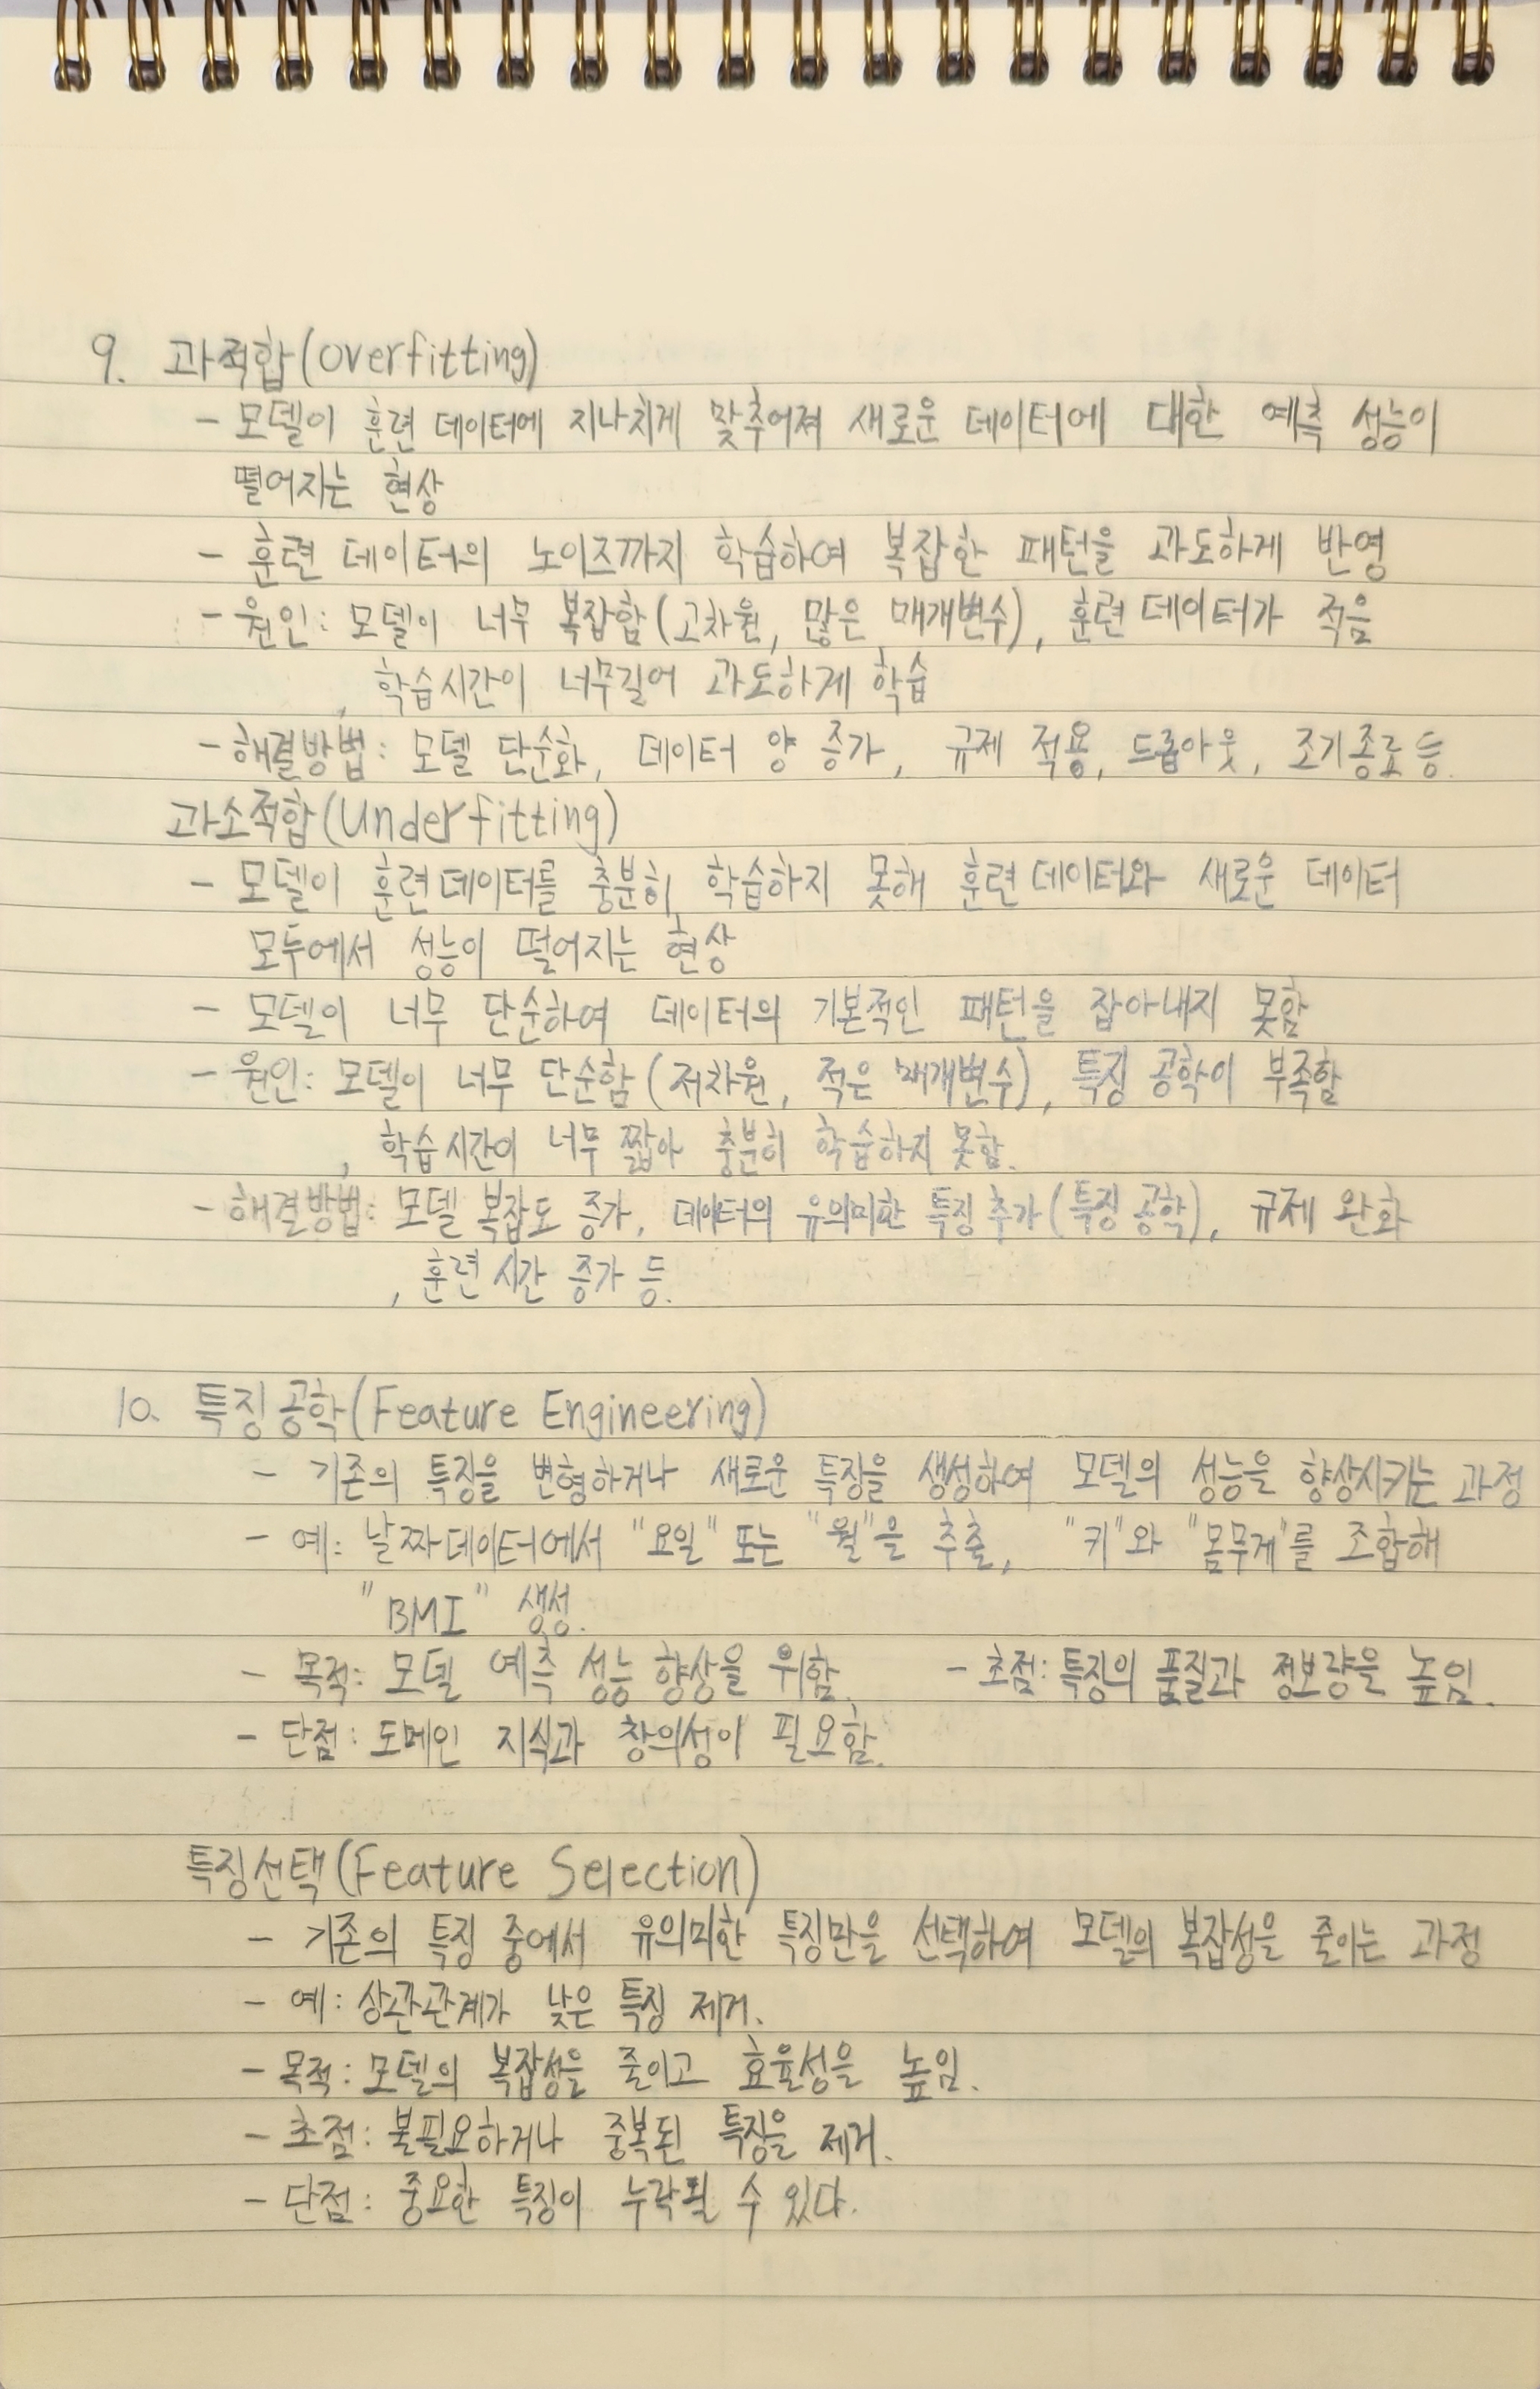 9. 과적합(overfitting)
- 모델이 훈련 데이터에 지나치게 맞추어져 새로운 데이터에 대한 예측 성능이
떨어지는 현상
- 훈련 데이터의 노이즈까지 학습하여 복잡한 패턴을 과도하게 반영
- 원인: 모델이 너무 복잡함(고차원, 많은 매개변수), 훈련 데이터가 적음
, 학습시간이 너무길어 과도하게 학습
- 해결방법: 모델 단순화, 데이터 양 증가, 규제 적용, 드롭아웃, 조기종료 등.
과소적합(Underfitting)
- 모델이 훈련데이터를 충분히 학습하지 못해 훈련 데이터와 새로운 데이터
모두에서 성능이 떨어지는 현상
- 모델이 너무 단순하여 데이터의 기본적인 패턴을 잡아내지 못함
- 원인: 모델이 너무 단순함(저차원, 적은 매개변수), 특징 공학이 부족함
, 학습시간이 너무 짧아 충분히 학습하지 못함.
- 해결방법: 모델 복잡도 증가, 데이터의 유의미한 특징 추가(특징 공학), 규제 완화
, 훈련 시간 증가 등.
10. 특징 공학(Feature Engineering)
- 기존의 특징을 변형하거나 새로운 특징을 생성하여 모델의 성능을 향상시키는 과정
- 예: 날짜데이터에서 "요일" 또는 "월"을 추출, "키"와 "몸무게"를 조합해
"BMI" 생성.
- 목적: 모델 예측 성능 향상을 위함. - 초점: 특징의 품질과 정보량을 높임.
- 단점: 도메인 지식과 창의성이 필요함.
특징선택(Feature Selection)
- 기존의 특징 중에서 유의미한 특징만을 선택하여 모델의 복잡성을 줄이는 과정
- 예: 상관관계가 낮은 특징 제거.
- 목적: 모델의 복잡성을 줄이고 효율성을 높임.
- 초점: 불필요하거나 중복된 특징을 제거.
- 단점: 중요한 특징이 누락될 수 있다.